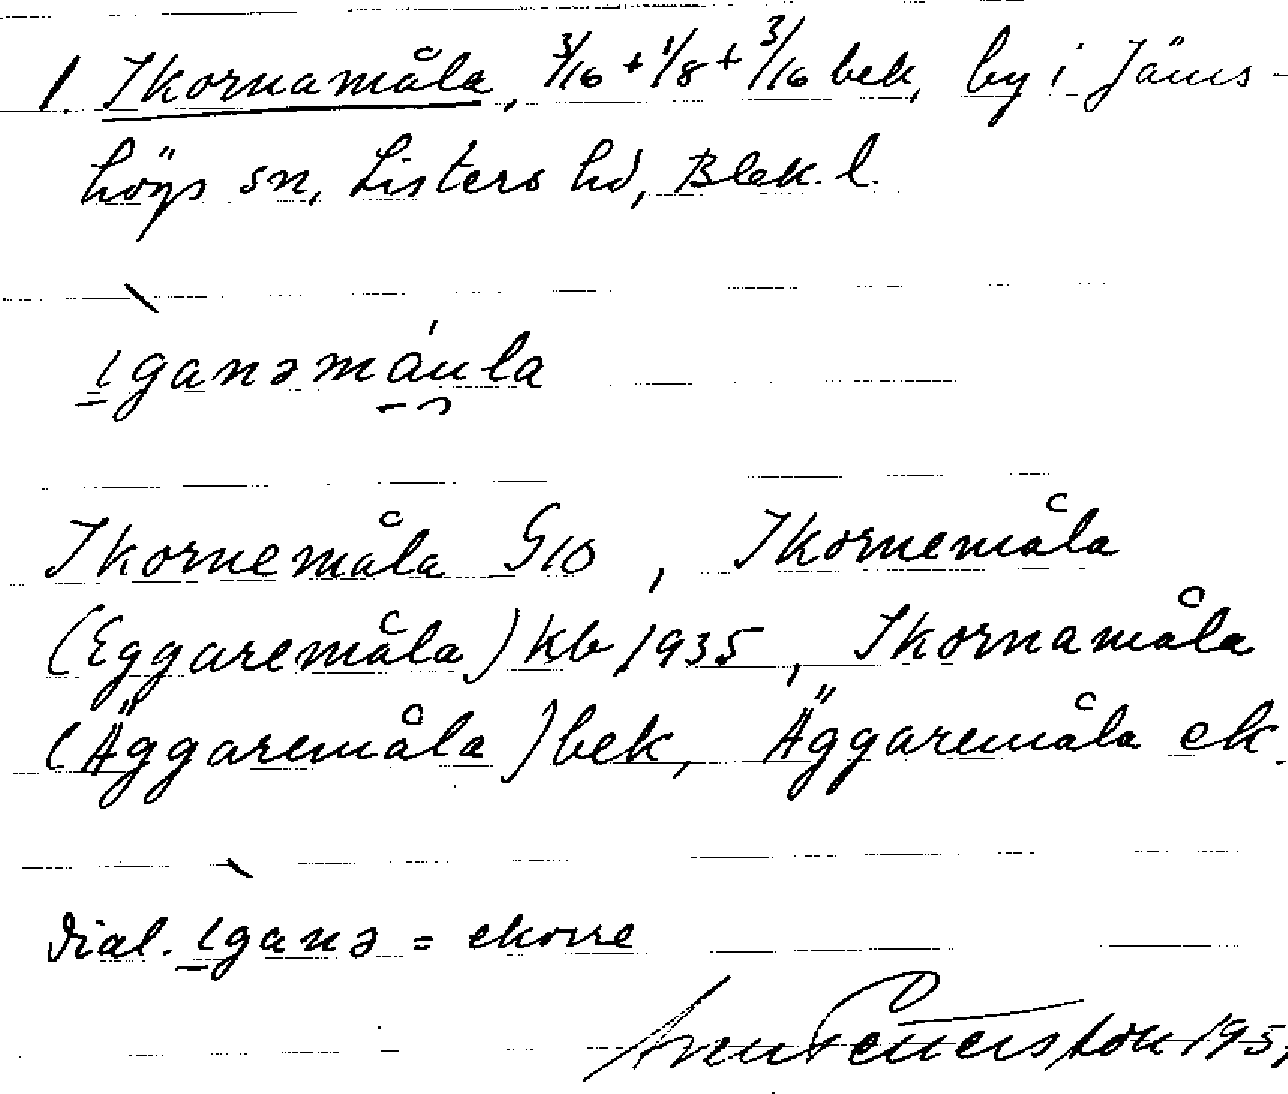 1. Ikornamåla, 3/16 + 1/8 + 3/16 bek, by i Jäms-
högs sn, Listers hd, Blek. l.
ıganəmáu̯la
Ikornemåla G10, Ikornemåla
(Eggaremåla) kb 1935, Ikornamåla
(Äggaremåla) bek, Äggaremåla ek.
dial. ıganə = ekorre